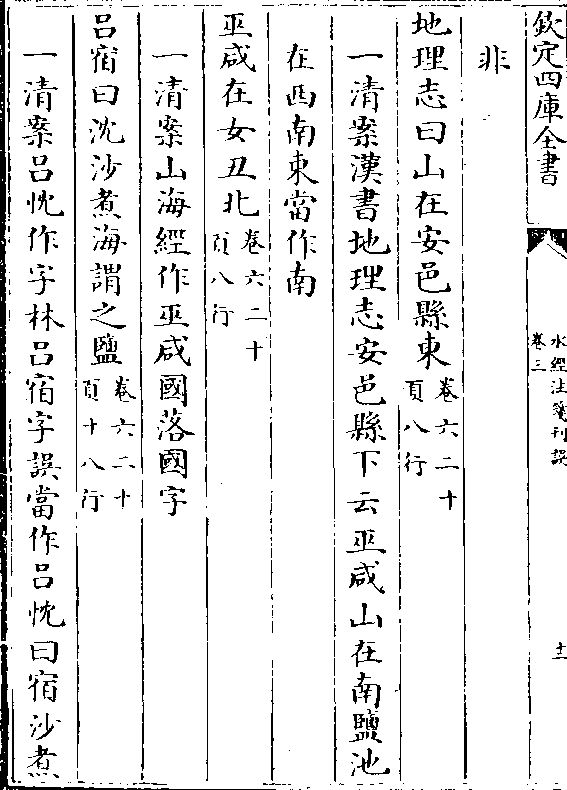 欽定四庫全書
水經注箋刊誤
卷三
十一
非
地理志曰山在安邑縣東卷六二十頁八行
一清案漢書地理志安邑縣下云巫咸山在南鹽池
在西南東當作南
巫咸在女丑北卷六二十頁八行
一清案山海經作巫咸國落國字
呂宿曰沈沙煮海謂之鹽卷六二十頁十八行
一清案呂忱作字林呂宿字誤當作呂忱曰宿沙煮